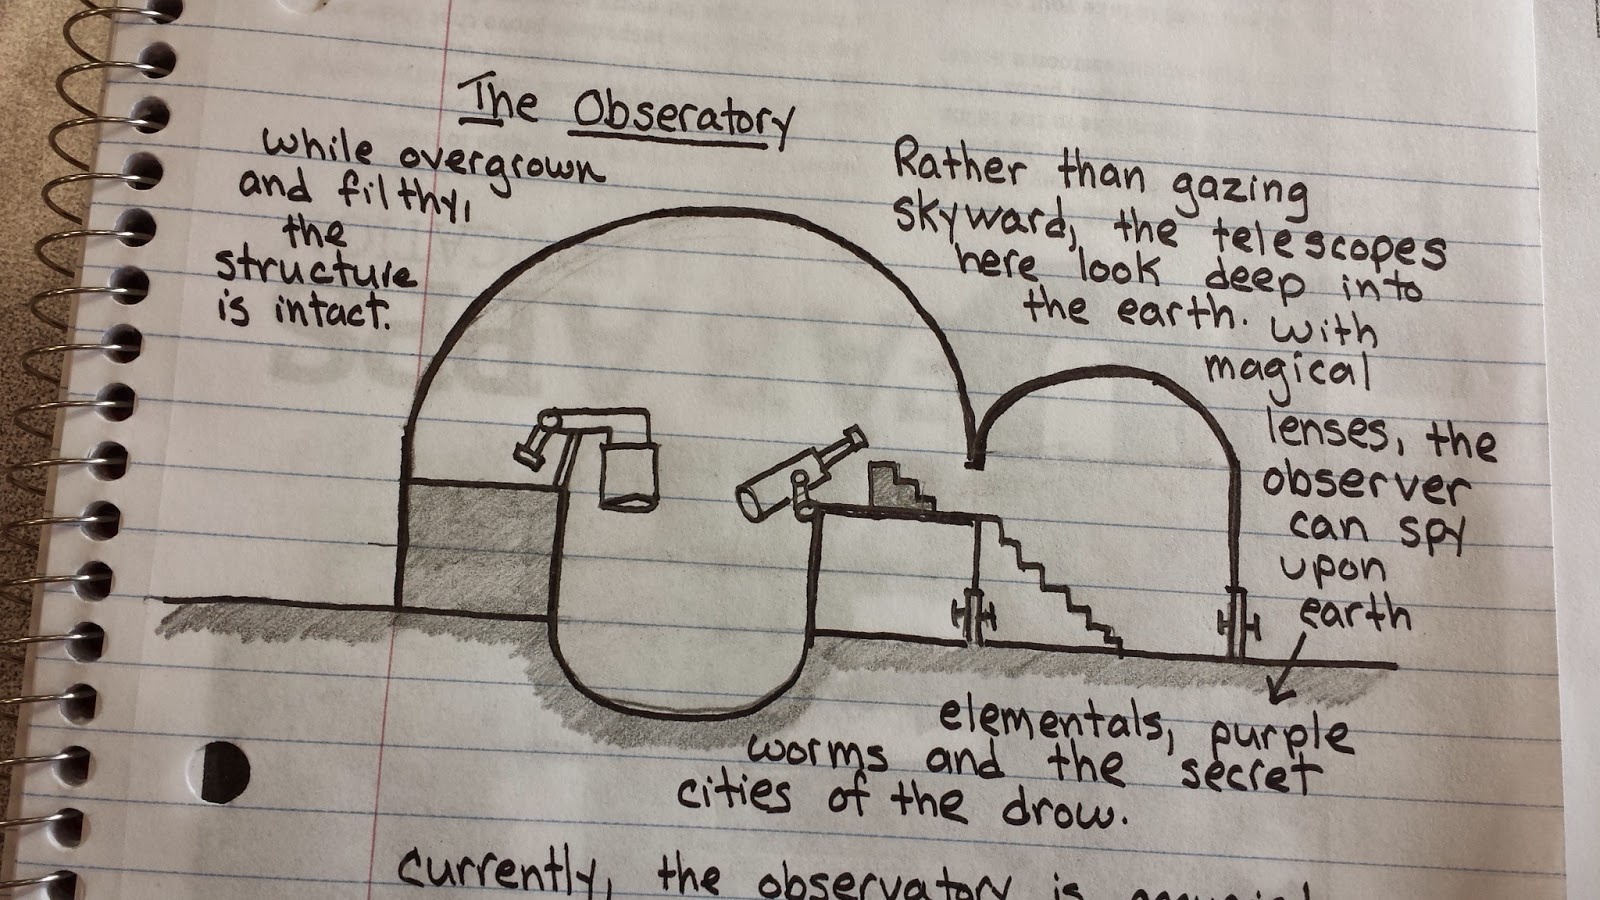 The Obseratory
while overgrown
and filthy,
the
structure
is intact.
Rather than gazing
skyward, the telescopes
here look deep into
the earth. with
magical
lenses, the
observer
can spy
upon
earth
elementals, purple
worms and the secret
cities of the drow.
currently, the observatory is